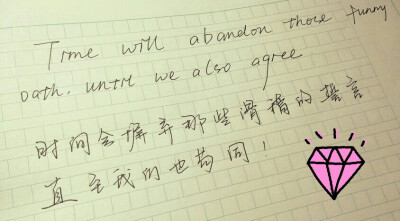 Time will abandon those funny
oath. until we also agree
时间会摒弃那些滑稽的誓言
直至我们也苟同！